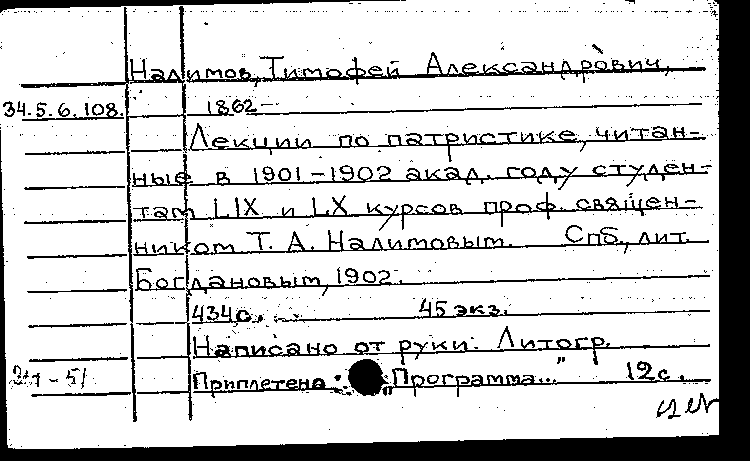 Налимов, Тимофей Александрович,
34.5.6.108. 1862-
Лекции по патристике, читан-
ные в 1901-1902 акад. году студен-
там LIX и LX курсов проф. священ-
ником Т. А. Налимовым. Спб., лит.
Богдановым, 1902.
434с. 45 экз.
Написано от руки. Литогр.
Приплетена: „Программа..." 12с.